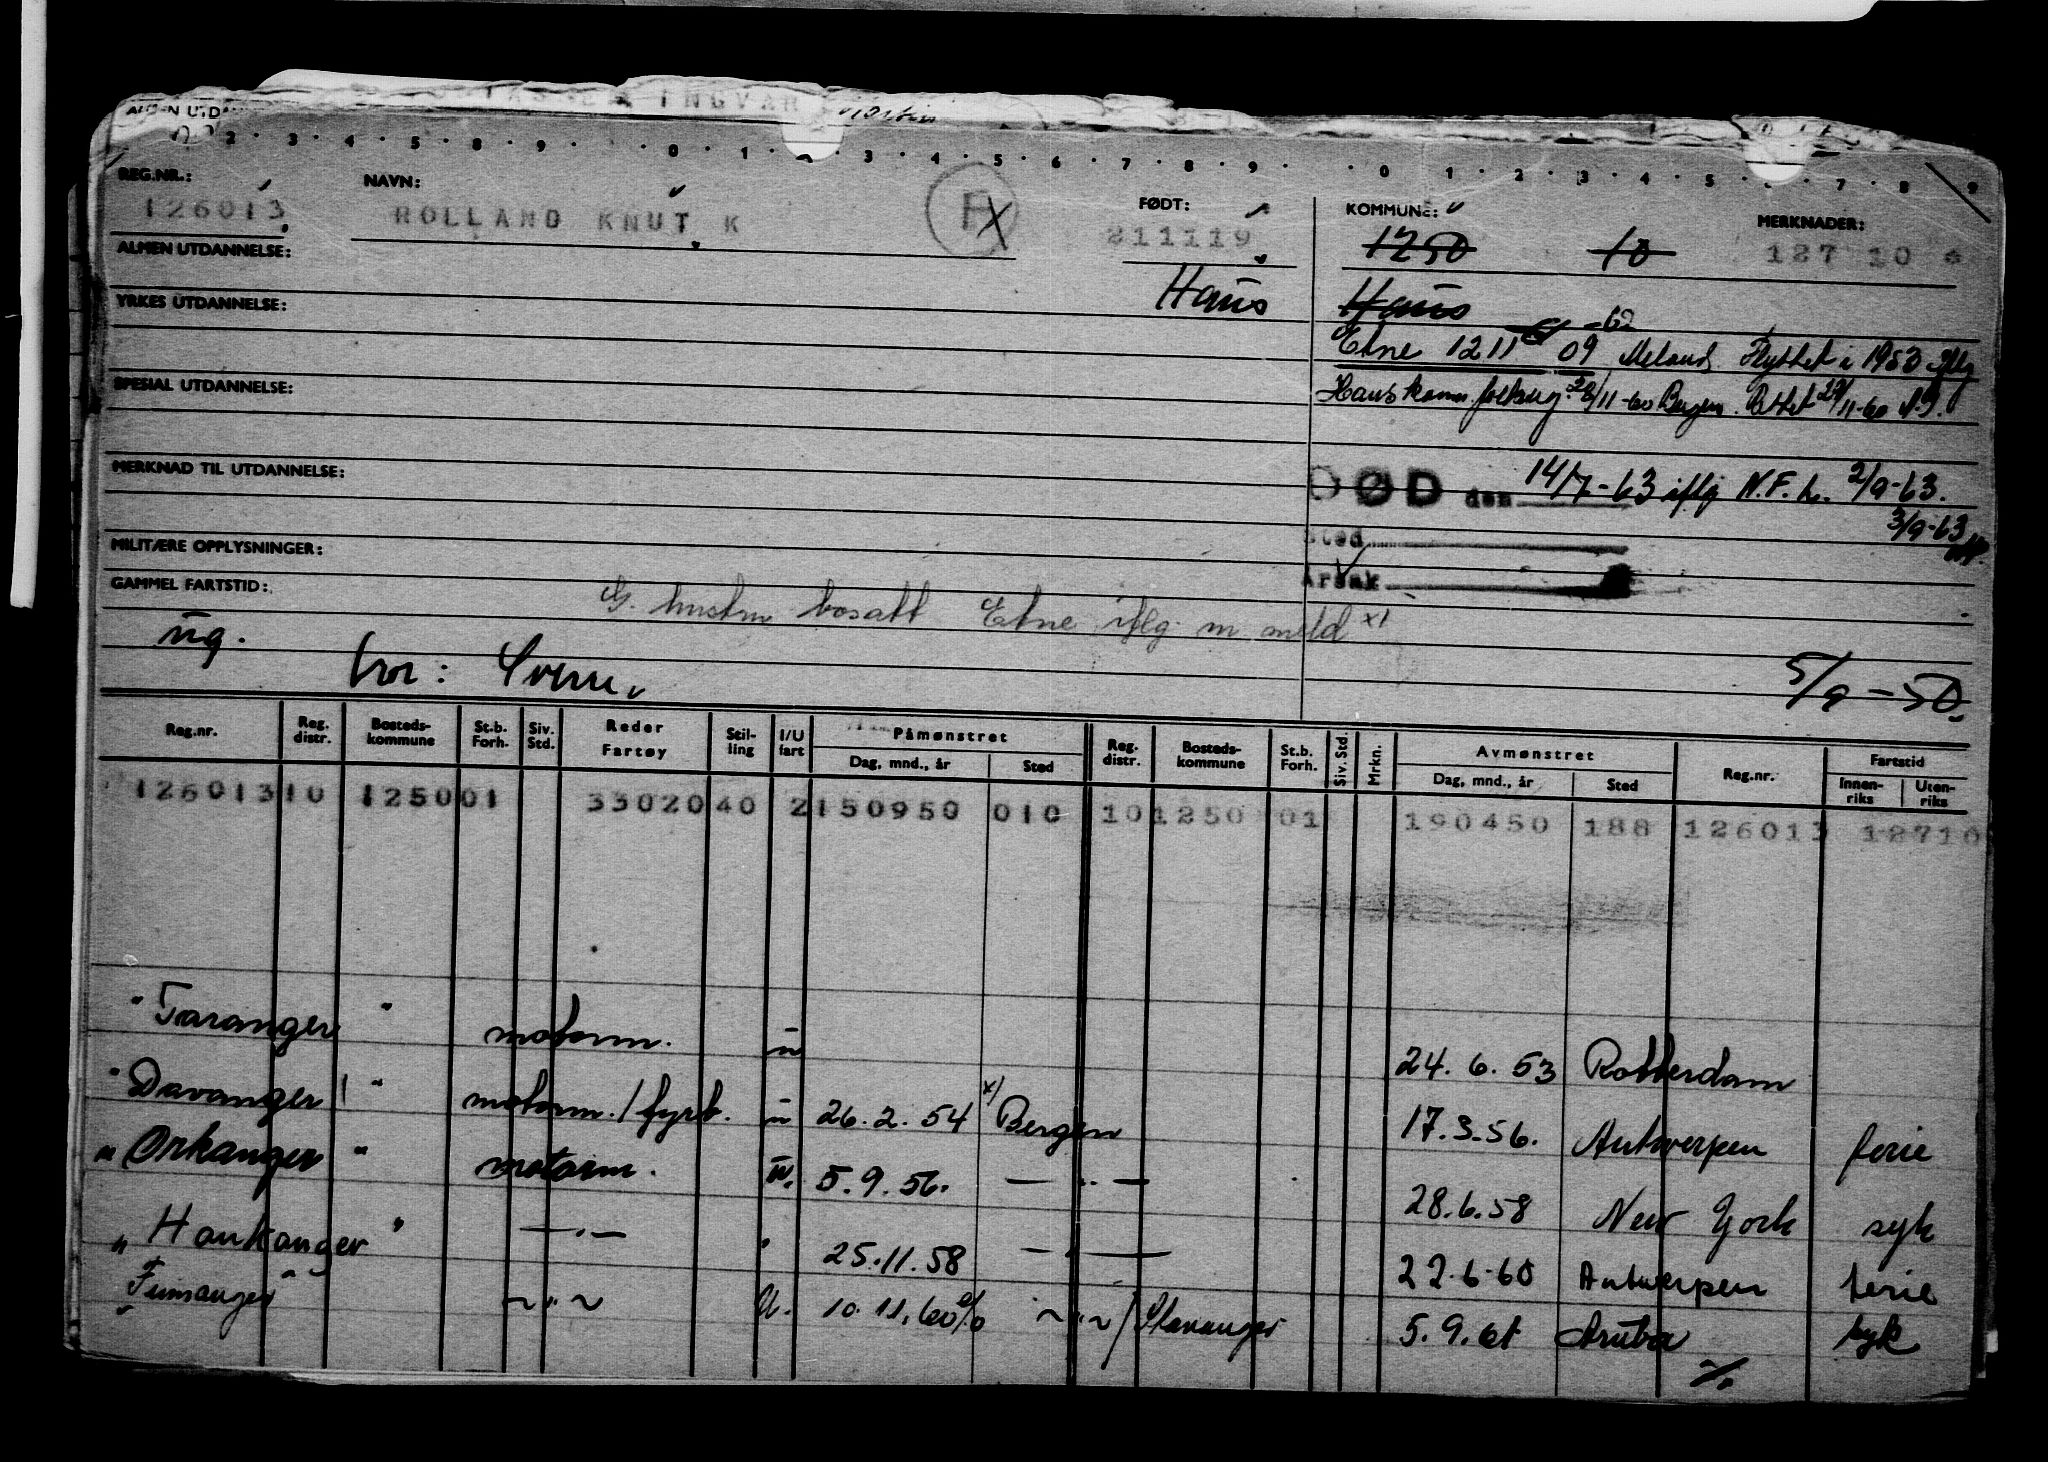 INGVAR
ALMEN UTDA
2 · 3 · 4 · 5 · 8 · 9 · · 0 · 1 · 3 · 4 · 5 · 6 · 7 · 8 · 9 · · 0 · 1 · 2 · 3 · 4 · 5 · 7 · 8 9
REG.NR.: NAVN: FØDT: KOMMUNE: MERKNADER:
126013 ROLLAND KNUT K F 211119 1250 10 127 10 *
ALMEN UTDANNELSE: Haus Haus
YRKES UTDANNELSE: -62
Etne 1211 09 Meland Flyttet i 1953 iflg
SPESIAL UTDANNELSE: Haus komm. folkreg. 28/11-60 Bergen. Rettet 29/11-60
MERKNAD TIL UTDANNELSE:
DØD den 14/7-63 iflg N.F.k. 2/9-63.
3/9-63
MILITÆRE OPPLYSNINGER: Sted
GAMMEL FARTSTID: Årsak
G. hustru bosatt Etne iflg. m meld x)
ug.
bor: 5/9-50.
Reg.nr. Reg. distr. Bosteds-kommune St.b. Forh. Siv. Std. Reder Fartøy Stil-ling I/U fart Påmønstret Dag, mnd., år Sted Reg. distr. Bosteds-kommune St.b. Forh. Siv. Std. Mrkn. Avmønstret Dag, mnd., år Sted Reg.nr. Fartstid Innen-riks Uten-riks
126013 10 1250 01 33020 40 2 150950 010 10 1250 01 190450 188 126013 12710
" Taranger " motorm. u 24. 6. 53 Rotterdam
" Davanger " motorm. / fyrb. u 26. 2. 54 x) Bergen 17. 3. 56. Antwerpen ferie
" Orkanger " motorm. u. 5. 9. 56. — " — 28. 6. 58 New York syk
" Haukanger " — " — " 25. 11. 58 — " — 22. 6. 60 Antwerpen ferie
" Fernanger " ~ " ~ u. 10. 11. 60 ~ " ~ / Stavanger 5. 9. 61 Aruba syk